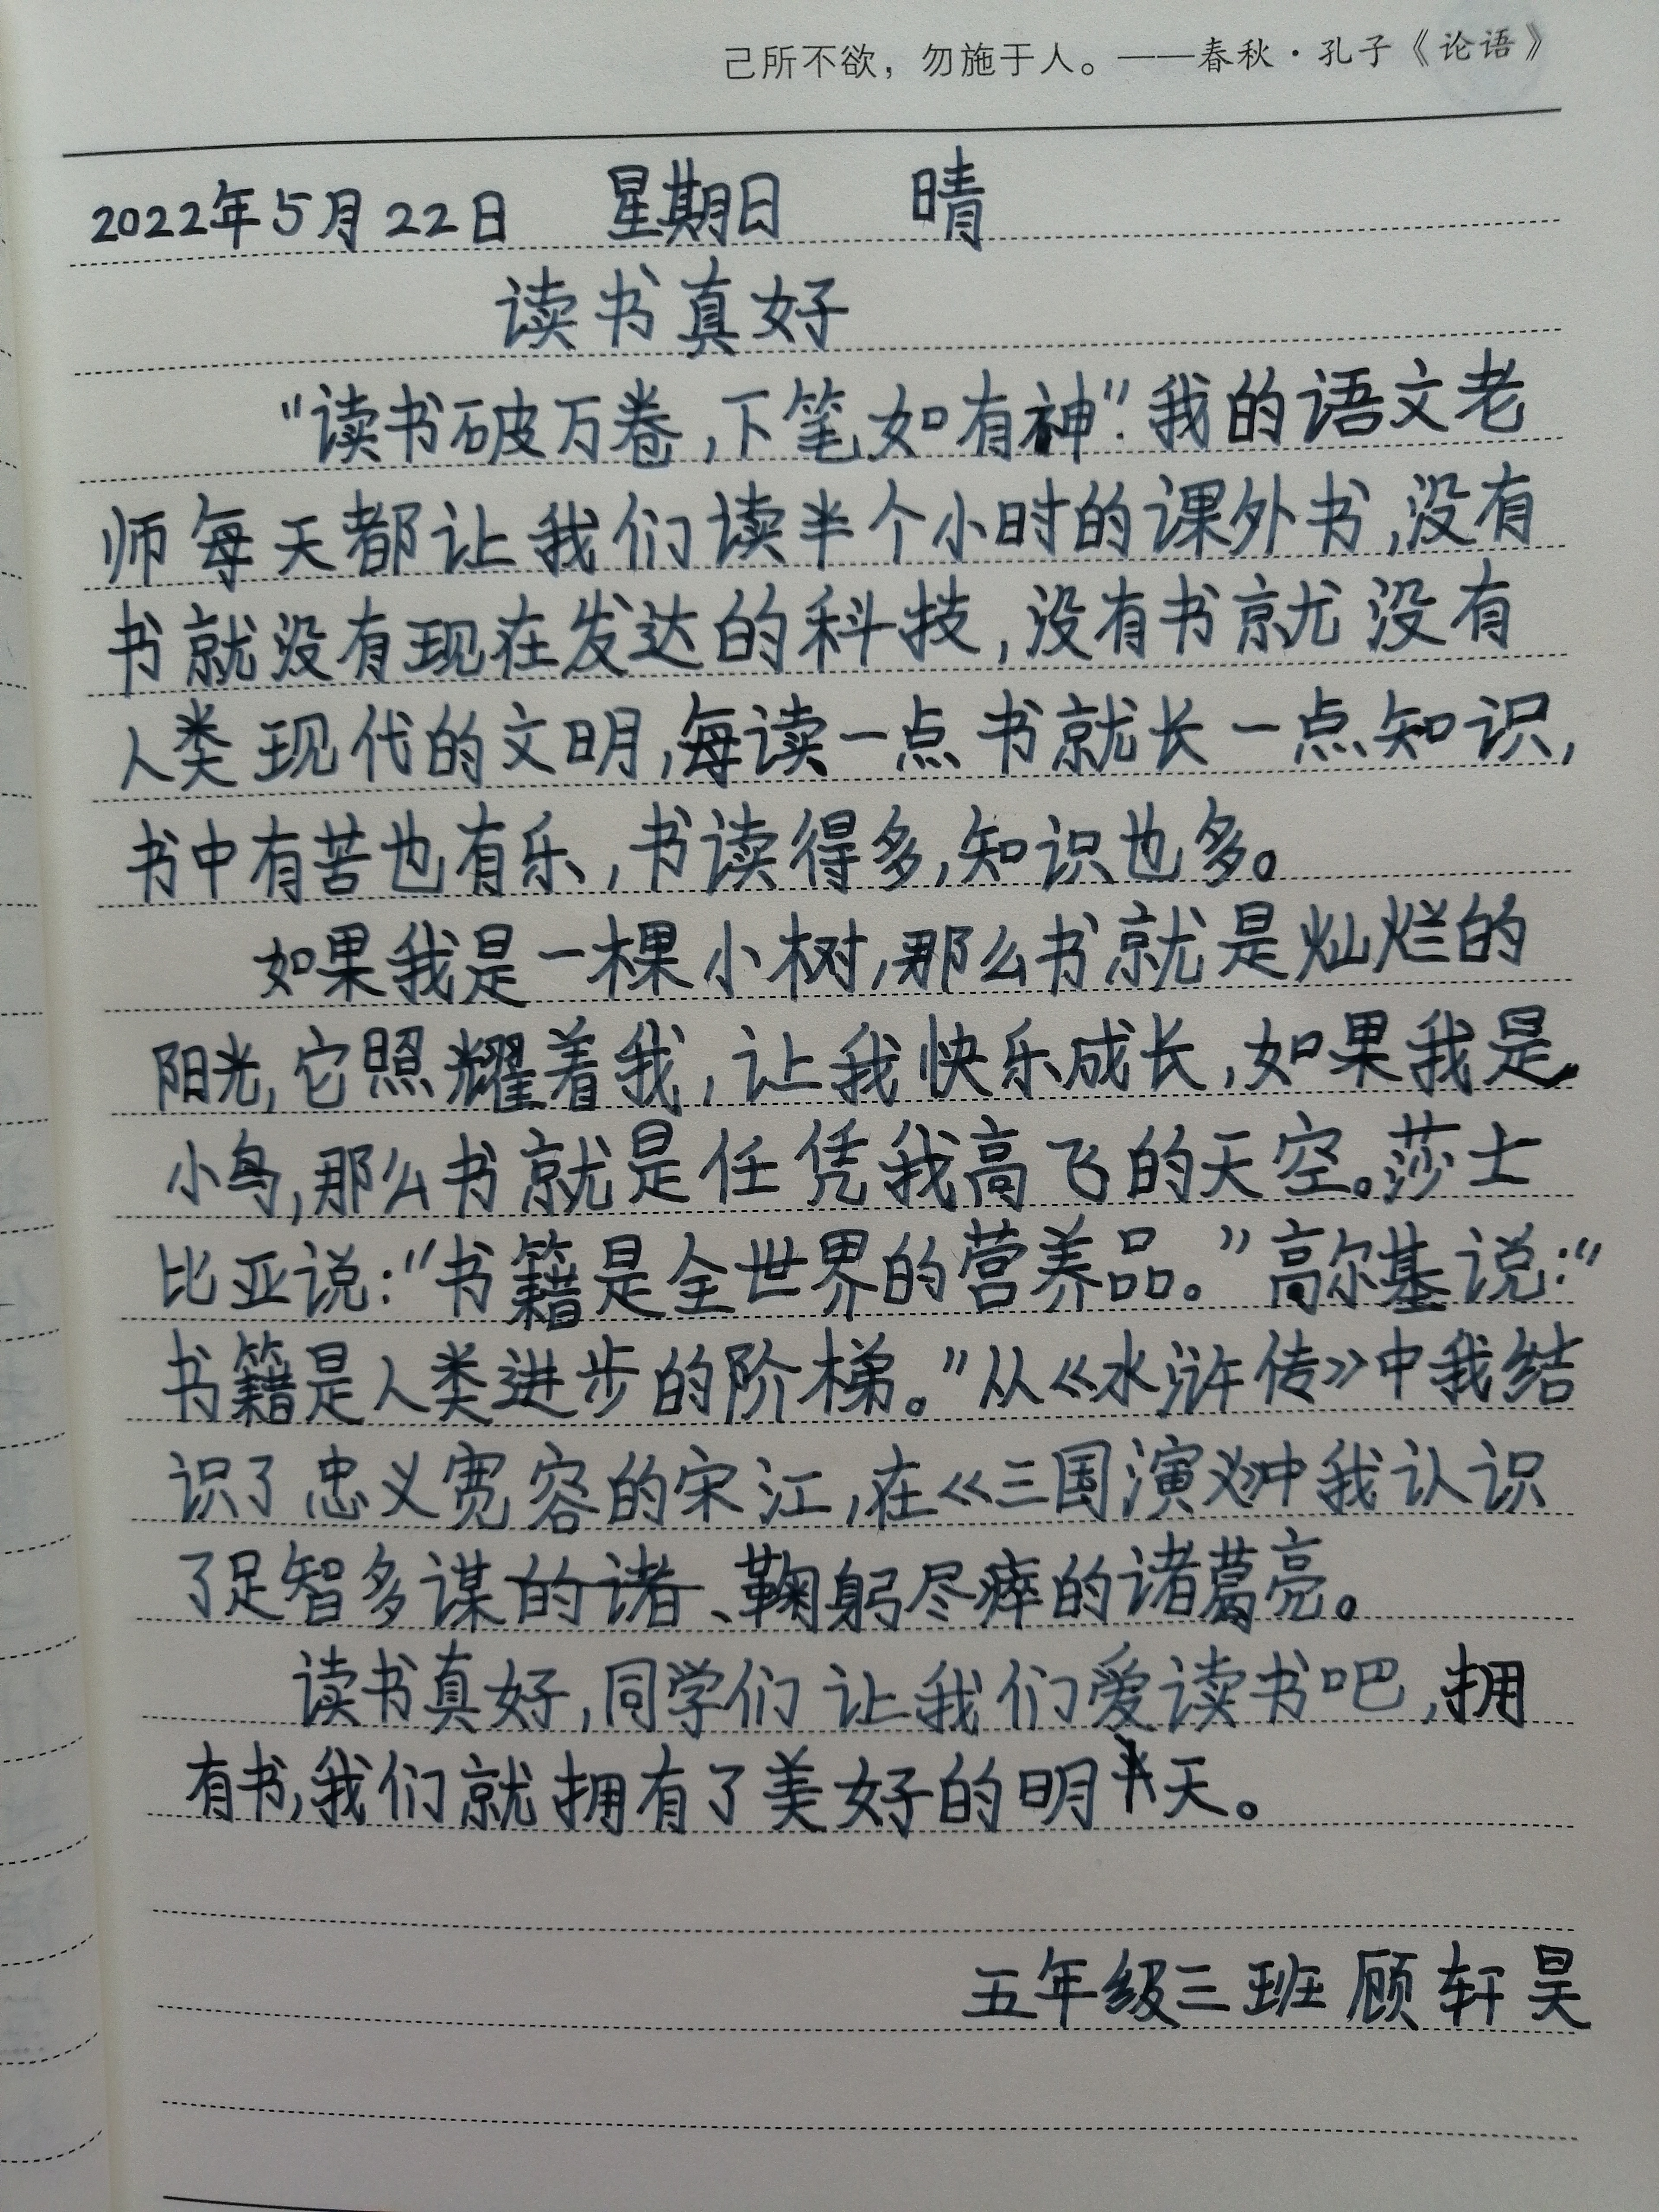 己所不欲，勿施于人。——春秋·孔子《论语》
2022年5月22日 星期日 晴
读书真好
“读书破万卷,下笔如有神”.我的语文老
师每天都让我们读半个小时的课外书,没有
书就没有现在发达的科技,没有书就没有
人类现代的文明,每读一点书就长一点知识,
书中有苦也有乐,书读得多,知识也多。
如果我是一棵小树,那么书就是灿烂的
阳光,它照耀着我,让我快乐成长,如果我是
小鸟,那么书就是任凭我高飞的天空。莎士
比亚说:“书籍是全世界的营养品。”高尔基说:“
书籍是人类进步的阶梯。”从《水浒传》中我结
识了忠义宽容的宋江,在《三国演义》中我认识
了足智多谋的诸、鞠躬尽瘁的诸葛亮。
读书真好,同学们让我们爱读书吧,拥
有书,我们就拥有了美好的明天。
五年级三班顾轩昊